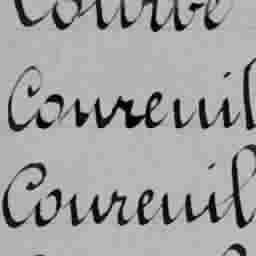 Courbe
Coureuil
Coureuil